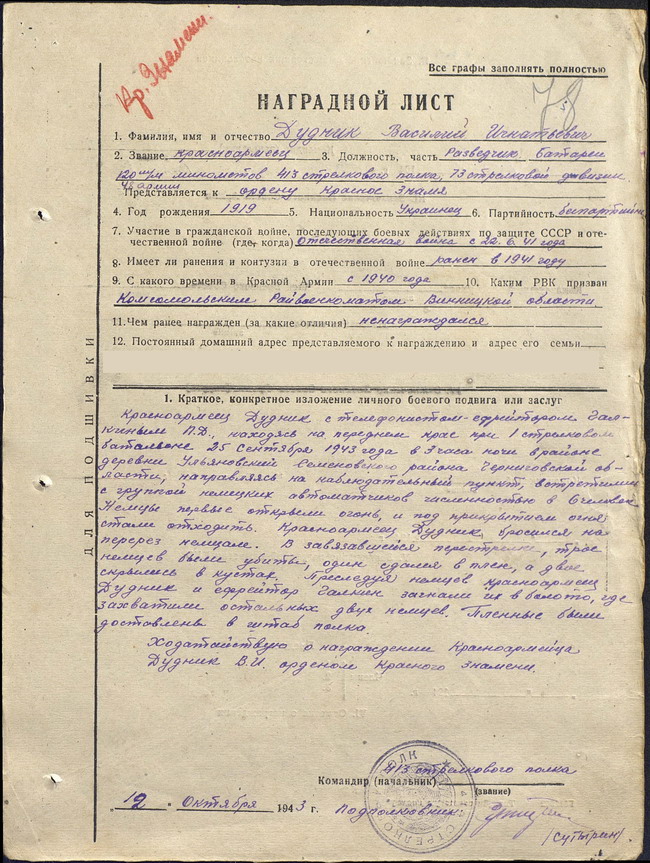 Кр. Знамени.
Все графы заполнять полностью
НАГРАДНОЙ ЛИСТ
1. Фамилия, имя и отчество Дудник Василий Игнатьевич
2. Звание красноармеец 3. Должность, часть Разведчик батареи
120 м/м минометов 413 стрелкового полка, 73 стрелковой дивизии
48 армии
Представляется к ордену Красное Знамя
4. Год рождения 1919 5. Национальность Украинец 6. Партийность беспартийный
7. Участие в гражданской войне, последующих боевых действиях по защите СССР и оте-
чественной войне (где, когда) отечественная война с 22.6.41 года
8. Имеет ли ранения и контузии в отечественной войне ранен в 1941 году
9. С какого времени в Красной Армии с 1940 года 10. Каким РВК призван
Комсомольским Райвоенкоматом Винницкой области
11. Чем ранее награжден (за какие отличия) ненаграждался
12. Постоянный домашний адрес представляемого к награждению и адрес его семьи
ДЛЯ ПОДШИВКИ
1. Краткое, конкретное изложение личного боевого подвига или заслуг
Красноармеец Дудник с телефонистом-ефрейтором Гал-
киным П.Д., находясь на переднем крае при 1 стрелковом
батальоне 25 Сентября 1943 года в 3 часа ночи в районе
деревни Ульяновский Семеновского района Черниговской об-
ласти, направляясь на наблюдательный пункт, встретились
с группой немецких автоматчиков численностью в 6 человек
Немцы первые открыли огонь, и под прикрытием огня
стали отходить. Красноармеец Дудник, бросился на
перерез немцам. В завязавшейся перестрелке, трое
немцев были убиты, один сдался в плен, а двое
скрылись в кустах. Преследуя немцев красноармеец
Дудник и ефрейтор Галкин загнали их в болото, где
захватили остальных двух немцев. Пленные были
доставлены в штаб полка.
Ходатайствую о награждении Красноармейца
Дудник В.И. орденом Красного Знамени.
413 стрелкового полка
Командир (начальник)
(звание)
12 Октября 1943 г. Подполковник
/Сутырин/